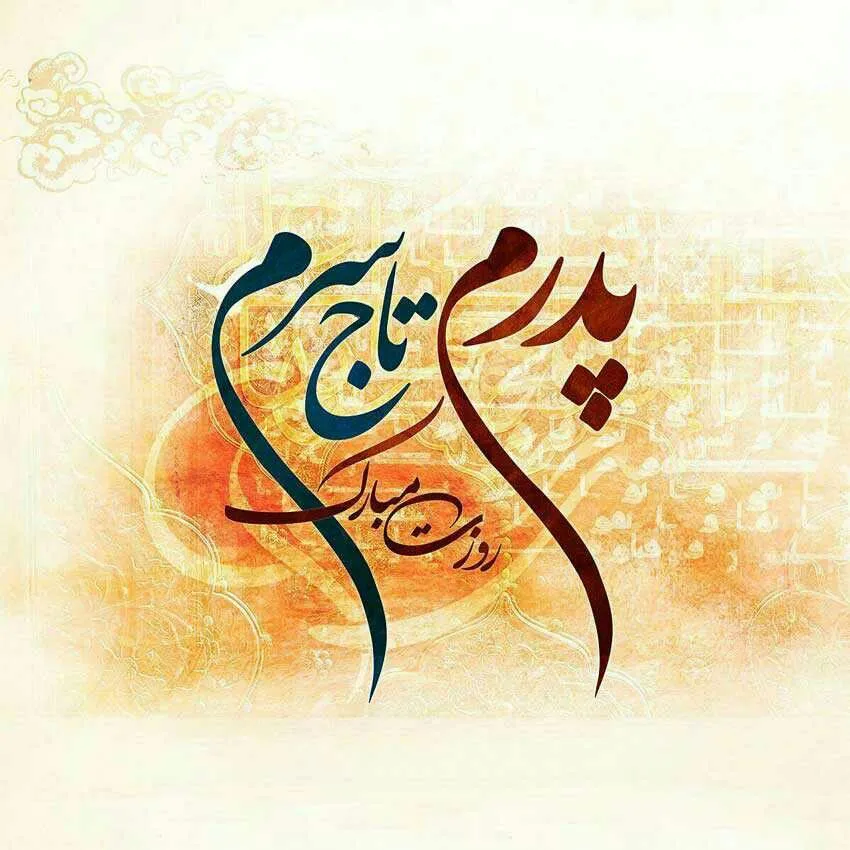 پدرم تاج سرم
روزت مبارک